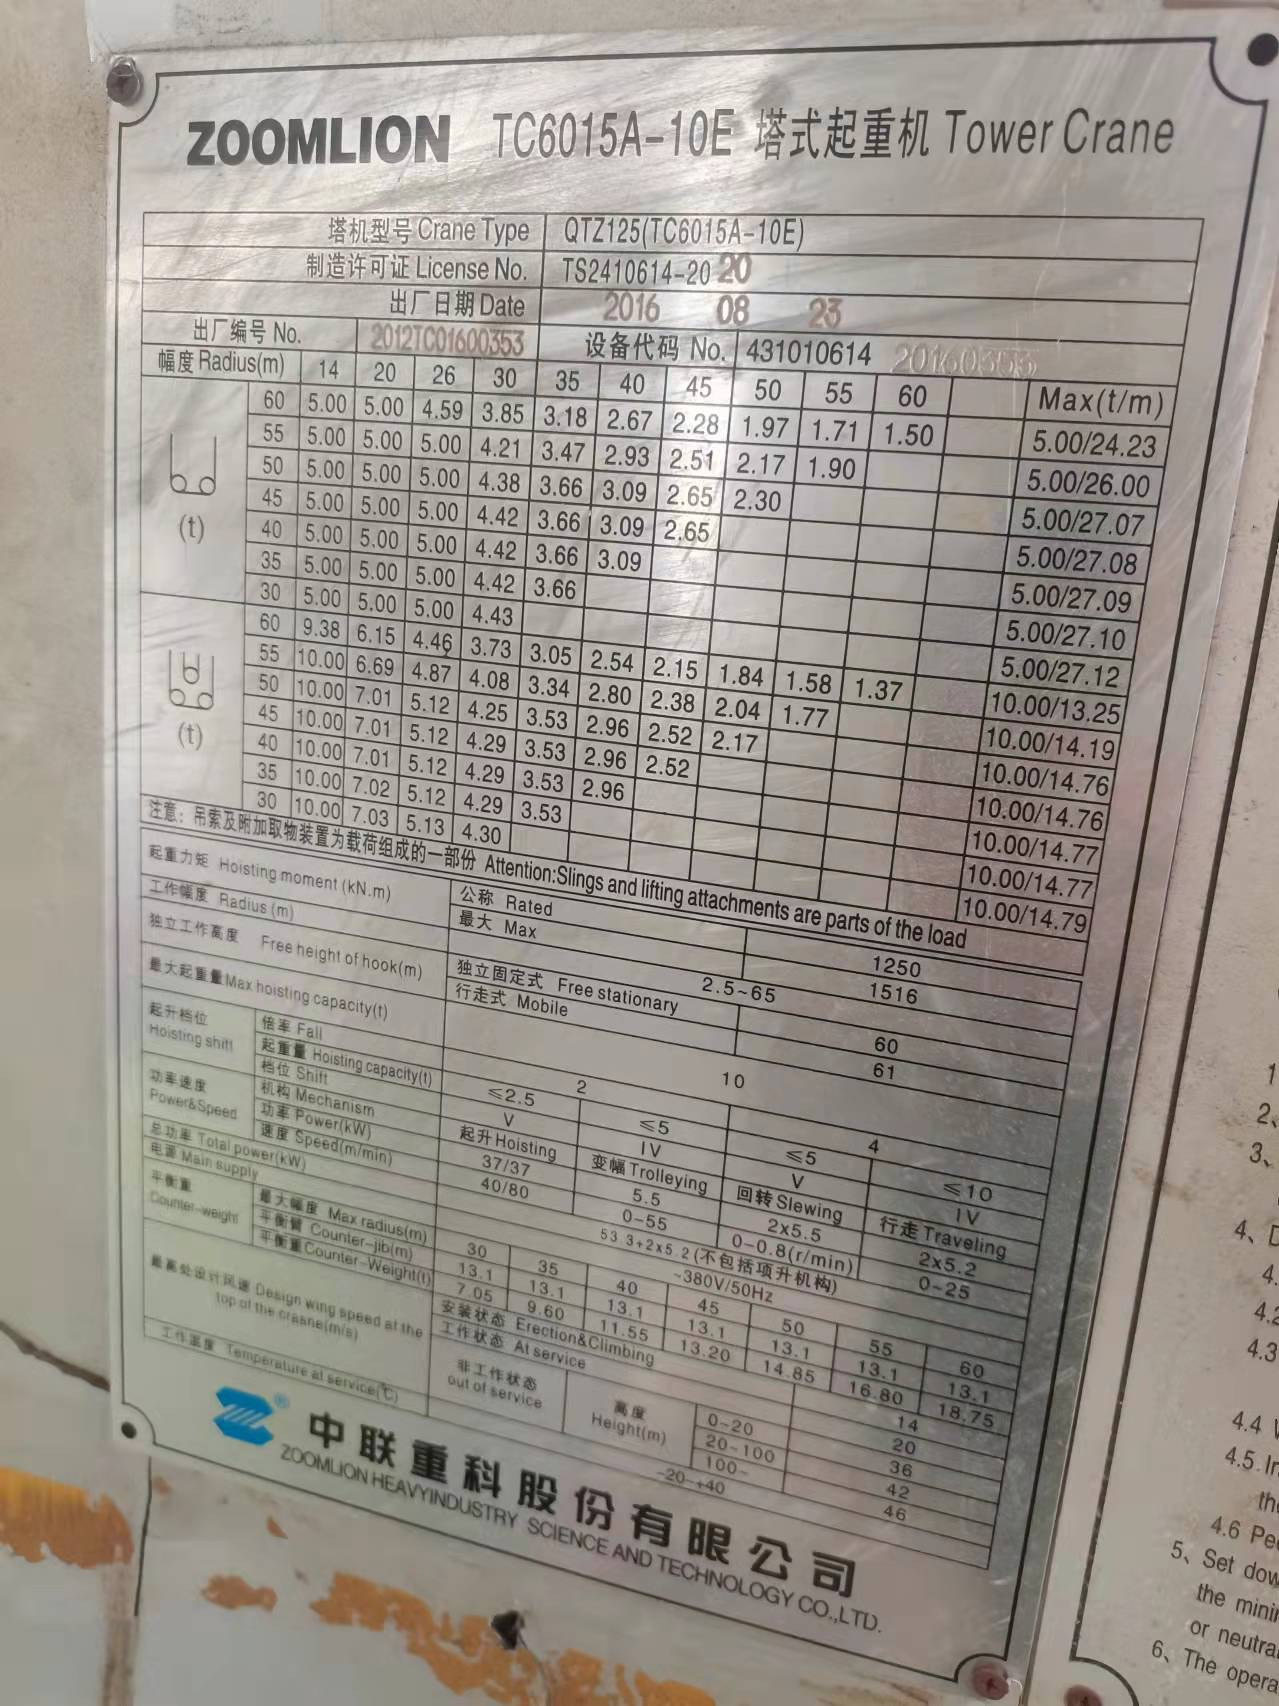 ZOOMLION TC6015A-10E 塔式起重机 Tower Crane
塔机型号 Crane Type QTZ125(TC6015A-10E)
制造许可证 License No. TS2410614-20 20
出厂日期 Date 2016 08 23
出厂编号 No. 2012TC01600353 设备代码 No. 431010614 20160353
幅度 Radius(m) 14 20 26 30 35 40 45 50 55 60 Max(t/m)
60 5.00 5.00 4.59 3.85 3.18 2.67 2.28 1.97 1.71 1.50 5.00/24.23
55 5.00 5.00 5.00 4.21 3.47 2.93 2.51 2.17 1.90 5.00/26.00
50 5.00 5.00 5.00 4.38 3.66 3.09 2.65 2.30 5.00/27.07
45 5.00 5.00 5.00 4.42 3.66 3.09 2.65 5.00/27.08
(t) 40 5.00 5.00 5.00 4.42 3.66 3.09 5.00/27.09
35 5.00 5.00 5.00 4.42 3.66 5.00/27.10
30 5.00 5.00 5.00 4.43 5.00/27.12
60 9.38 6.15 4.46 3.73 3.05 2.54 2.15 1.84 1.58 1.37 10.00/13.25
55 10.00 6.69 4.87 4.08 3.34 2.80 2.38 2.04 1.77 10.00/14.19
50 10.00 7.01 5.12 4.25 3.53 2.96 2.52 2.17 10.00/14.76
(t) 45 10.00 7.01 5.12 4.29 3.53 2.96 2.52 10.00/14.76
40 10.00 7.01 5.12 4.29 3.53 2.96 10.00/14.77
35 10.00 7.02 5.12 4.29 3.53 10.00/14.77
30 10.00 7.03 5.13 4.30 10.00/14.79
注意：吊索及附加取物装置为载荷组成的一部份 Attention:Slings and lifting attachments are parts of the load
起重力矩 Hoisting moment (kN.m) 公称 Rated 1250
最大 Max 1516
工作幅度 Radius (m) 2.5~65
独立工作高度 Free height of hook(m) 独立固定式 Free stationary 60
行走式 Mobile 61
最大起重量Max hoisting capacity(t) 10
起升档位 Hoisting shift 倍率 Fall 2 4
起重量 Hoisting capacity(t) ≤2.5 ≤5 ≤5 ≤10
档位 Shift V IV V IV
功率速度 Power&Speed 机构 Mechanism 起升 Hoisting 变幅 Trolleying 回转 Slewing 行走 Traveling
功率 Power(kW) 37/37 5.5 2x5.5 2x5.2
速度 Speed(m/min) 40/80 0-55 0-0.8(r/min) 0-25
总功率 Total power(kW) 53.3+2x5.2 (不包括顶升机构)
电源 Main supply ~380V/50Hz
平衡重 Counter-weight 最大幅度 Max radius(m) 30 35 40 45 50 55 60
平衡臂 Counter-jib(m) 13.1 13.1 13.1 13.1 13.1 13.1 13.1
平衡重Counter-Weight(t) 7.05 9.60 11.55 13.20 14.85 16.80 18.75
最高处设计风速 Design wing speed at the top of the craane(m/s) 安装状态 Erection&Climbing 14
工作状态 At service 20
非工作状态 out of service 高度 Height(m) 0-20 36
20-100 42
100- 46
工作温度 Temperature at service(℃) -20~+40
中联重科股份有限公司
ZOOMLION HEAVYINDUSTRY SCIENCE AND TECHNOLOGY CO.,LTD.
1
2、
3、
4、
4.
4.2
4.3
4.4
4.5
4.6
5、Set
the
or
6、The